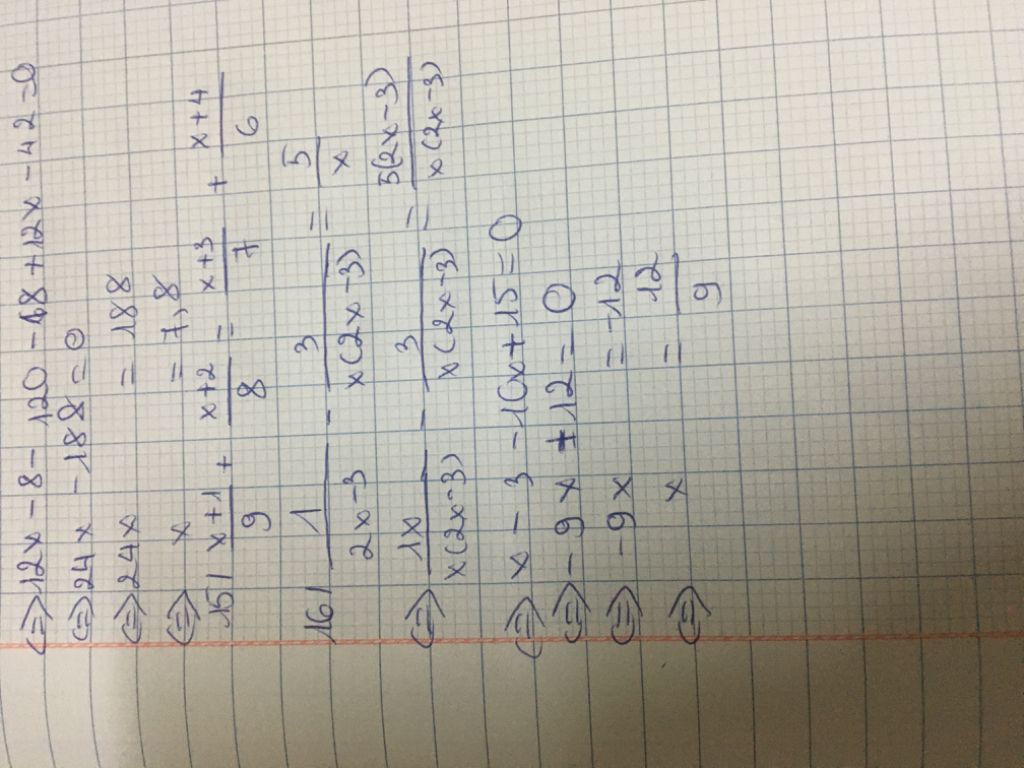 ⇔ 12x - 8 - 120 - 18 + 12x - 42 = 0
⇔ 24x - 188 = 0
⇔ 24x = 188
⇔ x = 7,8
15/ (x+1)/9 + (x+2)/8 = (x+3)/7 + (x+4)/6
16/ 1/(2x-3) - 3/(x(2x-3)) = 5/x
⇔ 1x/(x(2x-3)) - 3/(x(2x-3)) = 5(2x-3)/(x(2x-3))
⇔ x - 3 - 10x + 15 = 0
⇔ -9x + 12 = 0
⇔ -9x = -12
⇔ x = 12/9